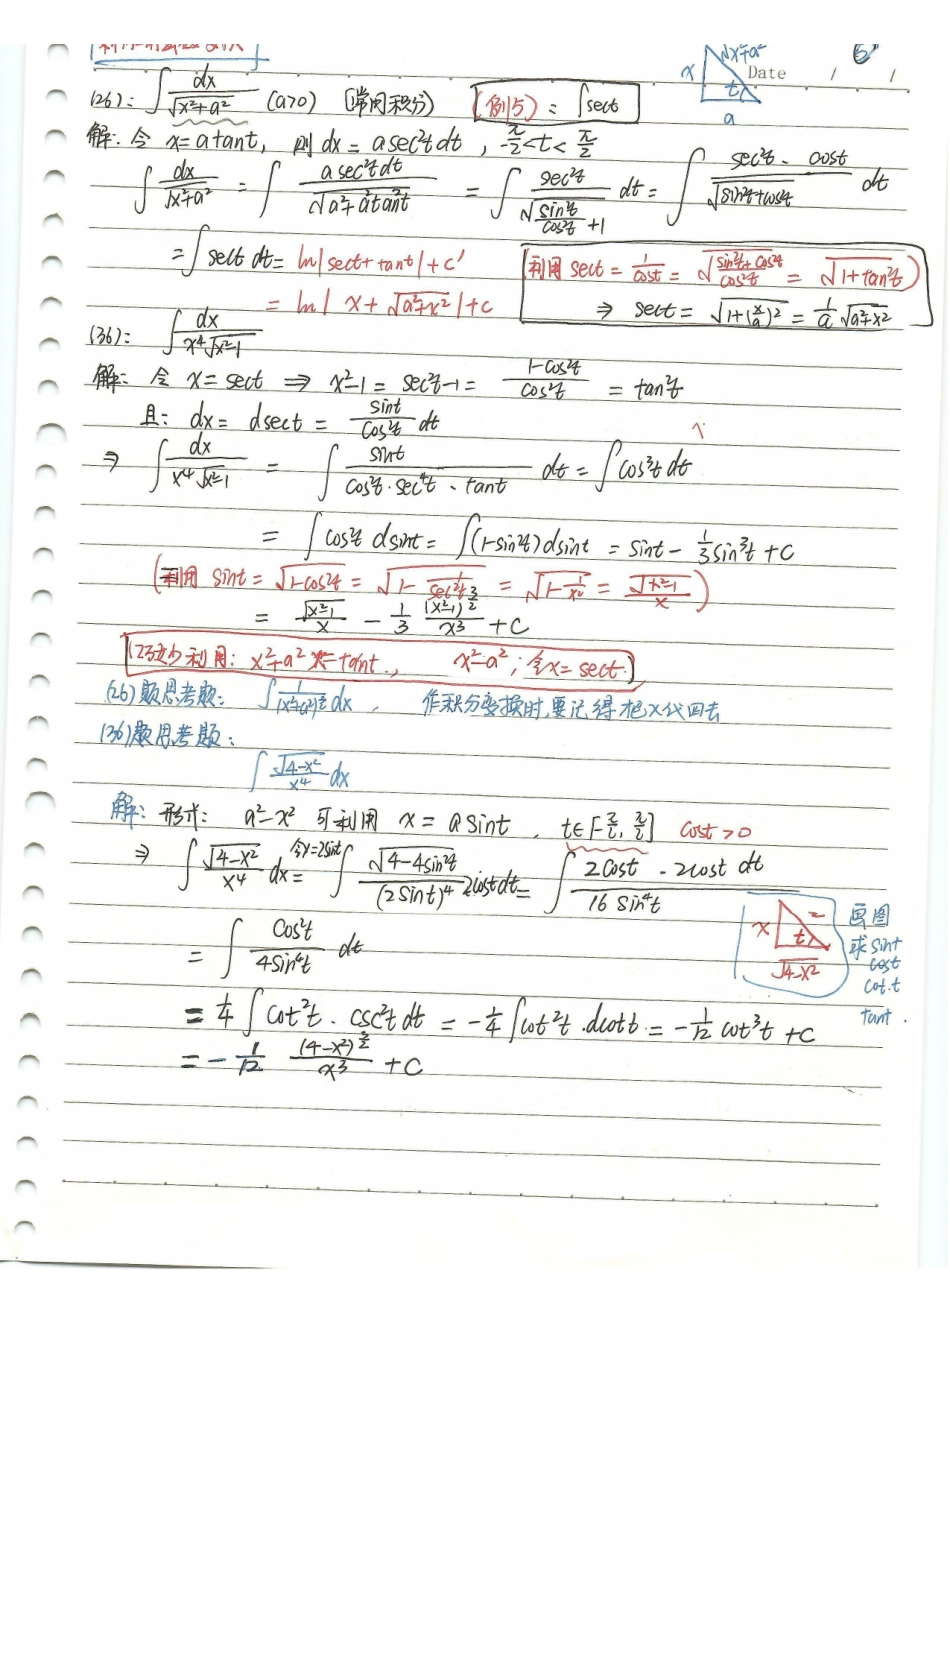 √x²+a² x t a Date / /
(26): ∫ dx/√(x²+a²) (a>0) (常用积分) (例15): ∫sect
解: 令 x=atant, 则 dx = asec²t dt, -π/2<t<π/2
∫ dx/√(x²+a²) = ∫ a sec²t dt/√(a²+a²tan²t) = ∫ sec²t/√(sin²t/cos²t +1) dt = ∫ sec²t · cost/√(sin²t+cos²t) dt
=∫sect dt = ln|sect+tant|+c' (利用 sect = 1/cost = √((sin²t+cos²t)/cos²t) = √(1+tan²t))
= ln| x+√(a²+x²) |+c ⇒ sect = √(1+(x/a)²) = 1/a √(a²+x²)
(36): ∫ dx/(x⁴√(x²-1))
解: 令 x=sect ⇒ x²-1 = sec²t-1 = (1-cos²t)/cos²t = tan²t
且: dx = dsect = sint/cos²t dt
⇒ ∫ dx/(x⁴√(x²-1)) = ∫ sint/(cos²t·sec⁴t·tant) dt = ∫cos³t dt
= ∫cos²t dsint = ∫(1-sin²t)dsint = sint - 1/3 sin³t + C
(利用 sint = √(1-cos²t) = √(1-1/sec²t) = √(1-1/x²) = √(x²-1)/x)
= √(x²-1)/x - 1/3 (x²-1)^(3/2)/x³ + C
巧妙利用: x²+a² x=tant., x²-a²; 令x=sect.
(26)题思考题: ∫ 1/(x²+a²)^(3/2) dx, 作积分变换时,要记得把x代回去
(36)题思考题:
∫ √(4-x²)/x⁴ dx
解: 形式: a²-x² 可利用 x=asint, t∈[-π/2, π/2] cost>0
⇒ ∫ √(4-x²)/x⁴ dx 令x=2sint = ∫ √(4-4sin²t)/(2sint)⁴ 2costdt = ∫ 2cost·2cost dt/16sin⁴t
= ∫ cos²t/4sin⁴t dt
x 2 t √(4-x²)
画图
求sint
cost
cot.t
tant.
= 1/4 ∫cot²t·csc²t dt = -1/4 ∫cot²t·dcott = -1/12 cot³t + C
= -1/12 (4-x²)^(3/2)/x³ + C